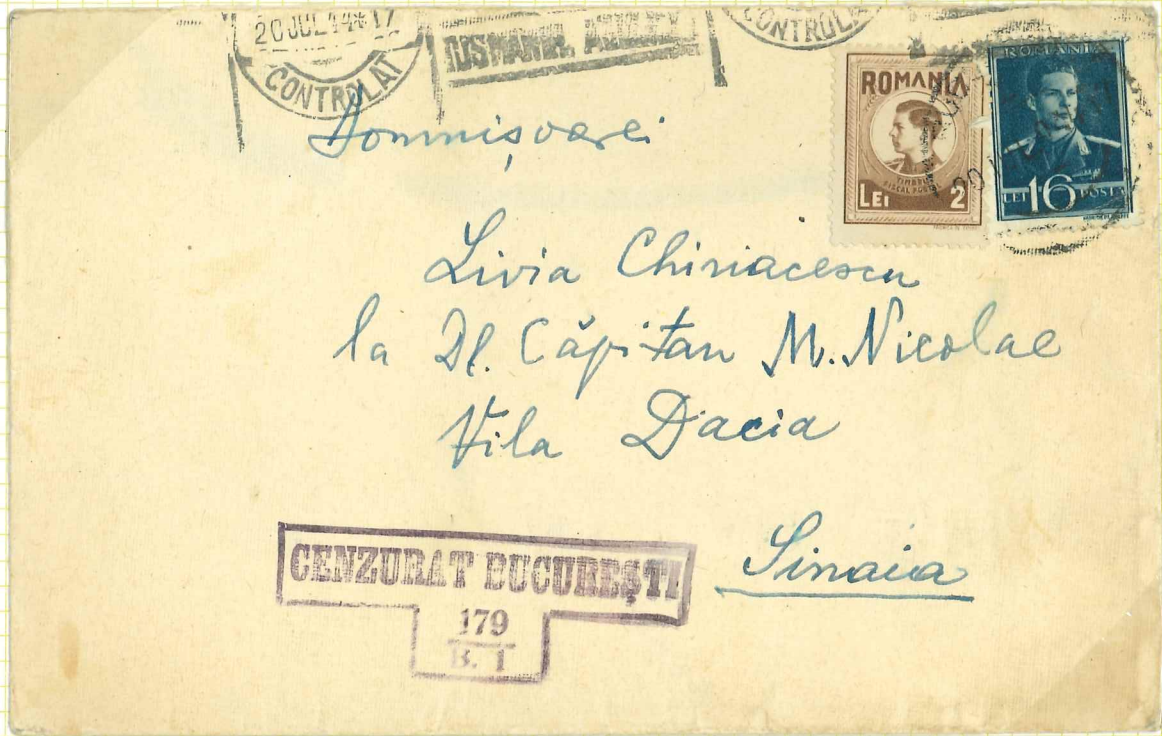 20 JUL 44 * 17
CONTROLAT
CONTROLA
ROMANIA
TIMBRU
FISCAL POSTAL
LEI 2
ROMANIA
LEI 16 POSTA
Domnișoarei
Livia Chiriacescu
la Dl. Căpitan M. Nicolae
Vila Dacia
Sinaia
CENZURAT BUCUREȘTI
179
B. I